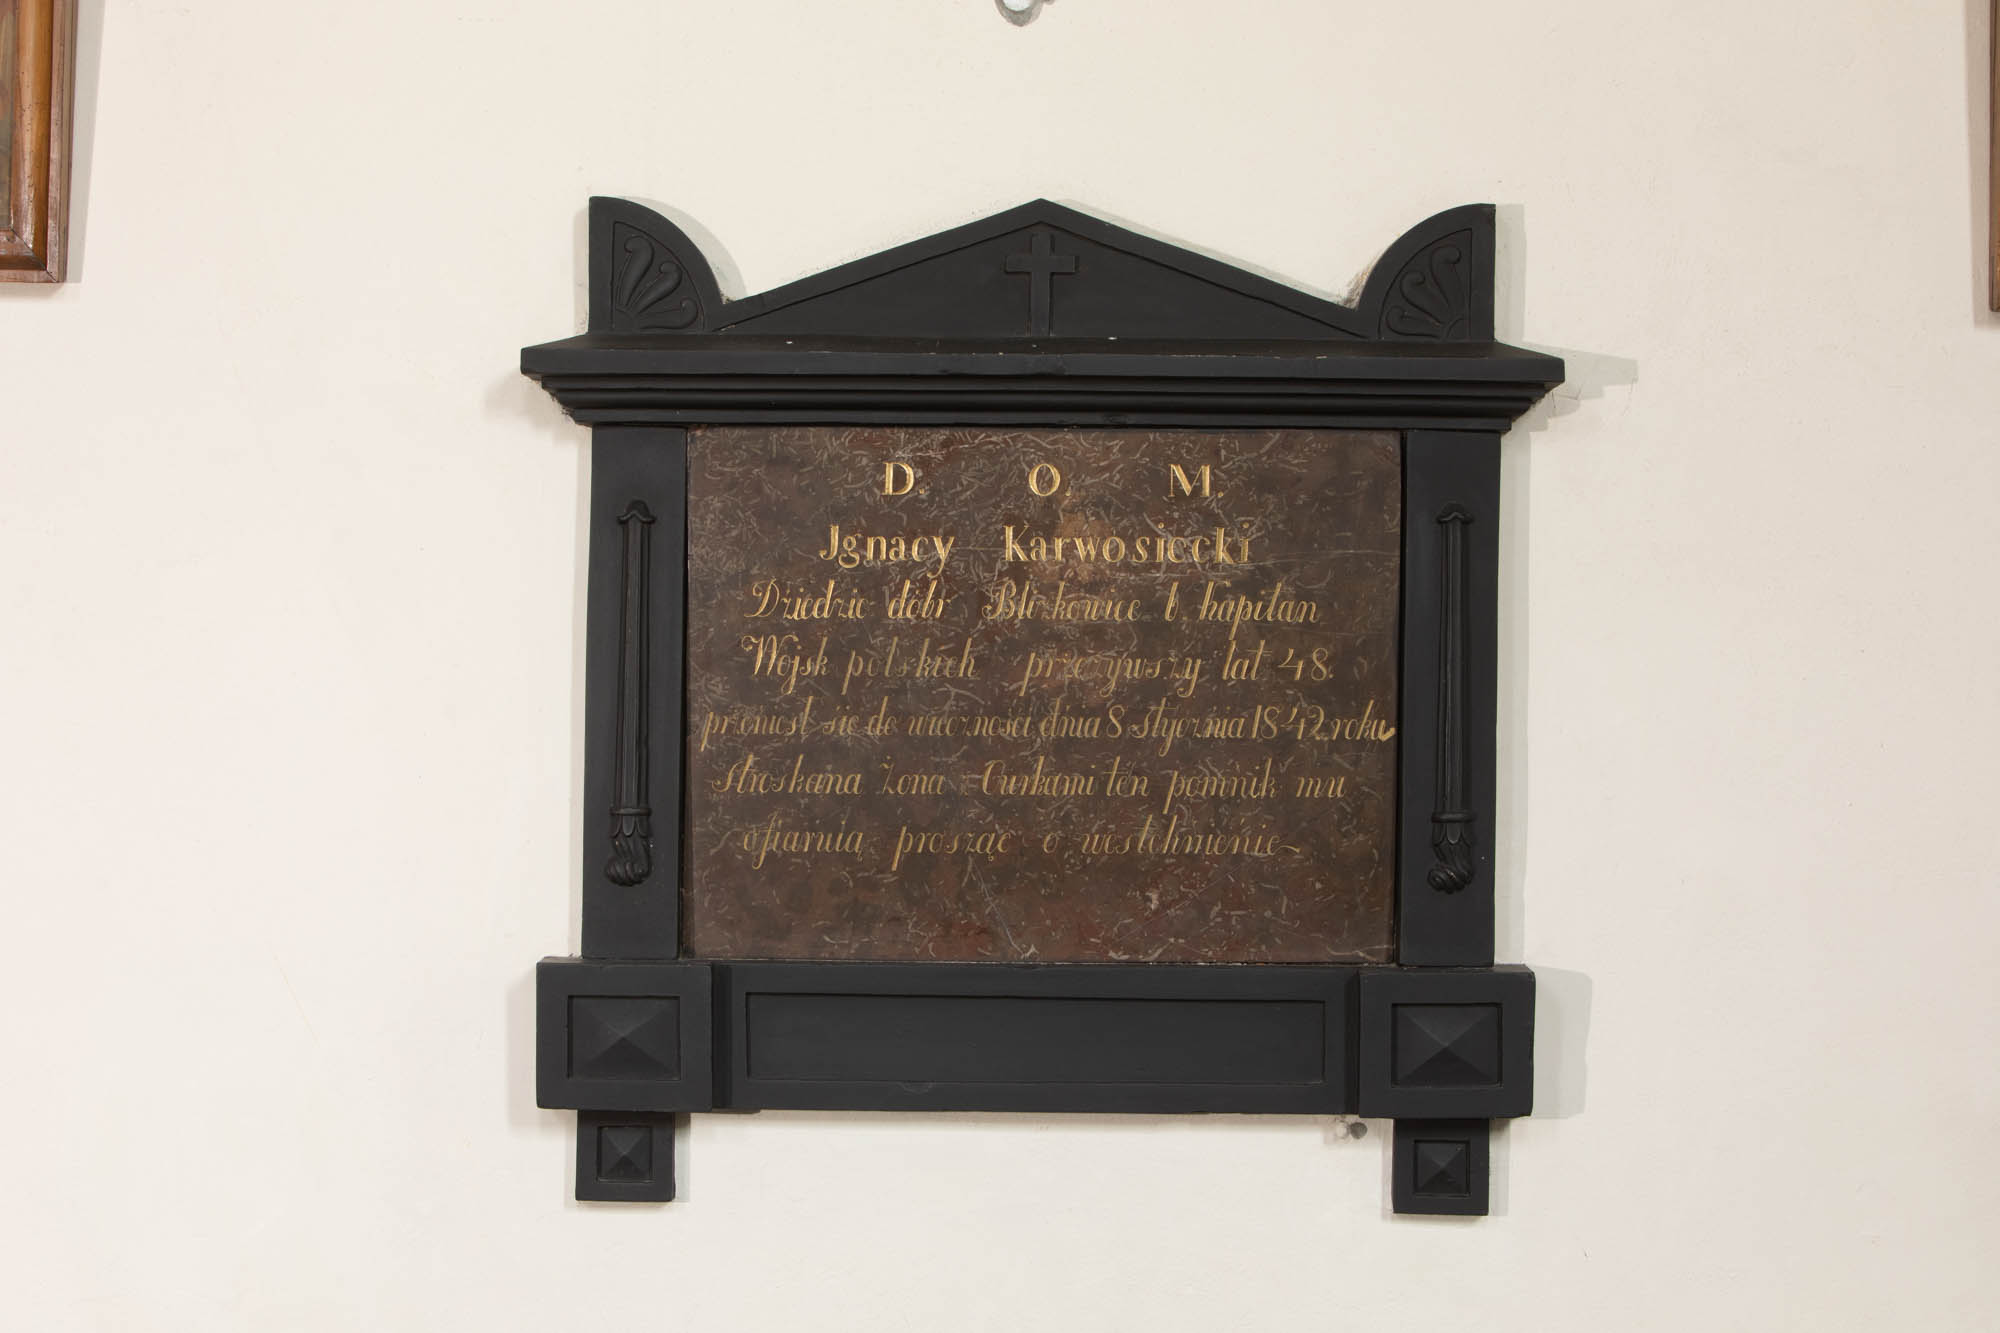 D. O. M.
Jgnacy Karwosiecki
Dziedzic dóbr b. kapitan
Wojsk polskich przeżywszy lat 48.
przeniosł się do wieczności dnia 8 stycznia 1842 roku
stroskana żona z Curkami ten pomnik mu
ofiarują prosząc o westchnienie